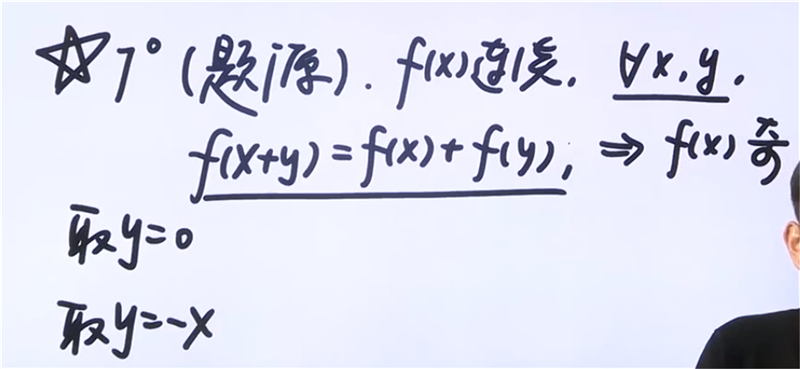 ☆7°(题源). f(x)连续. ∀x,y,
f(x+y)=f(x)+f(y), ⇒ f(x)奇
取y=0
取y=-x